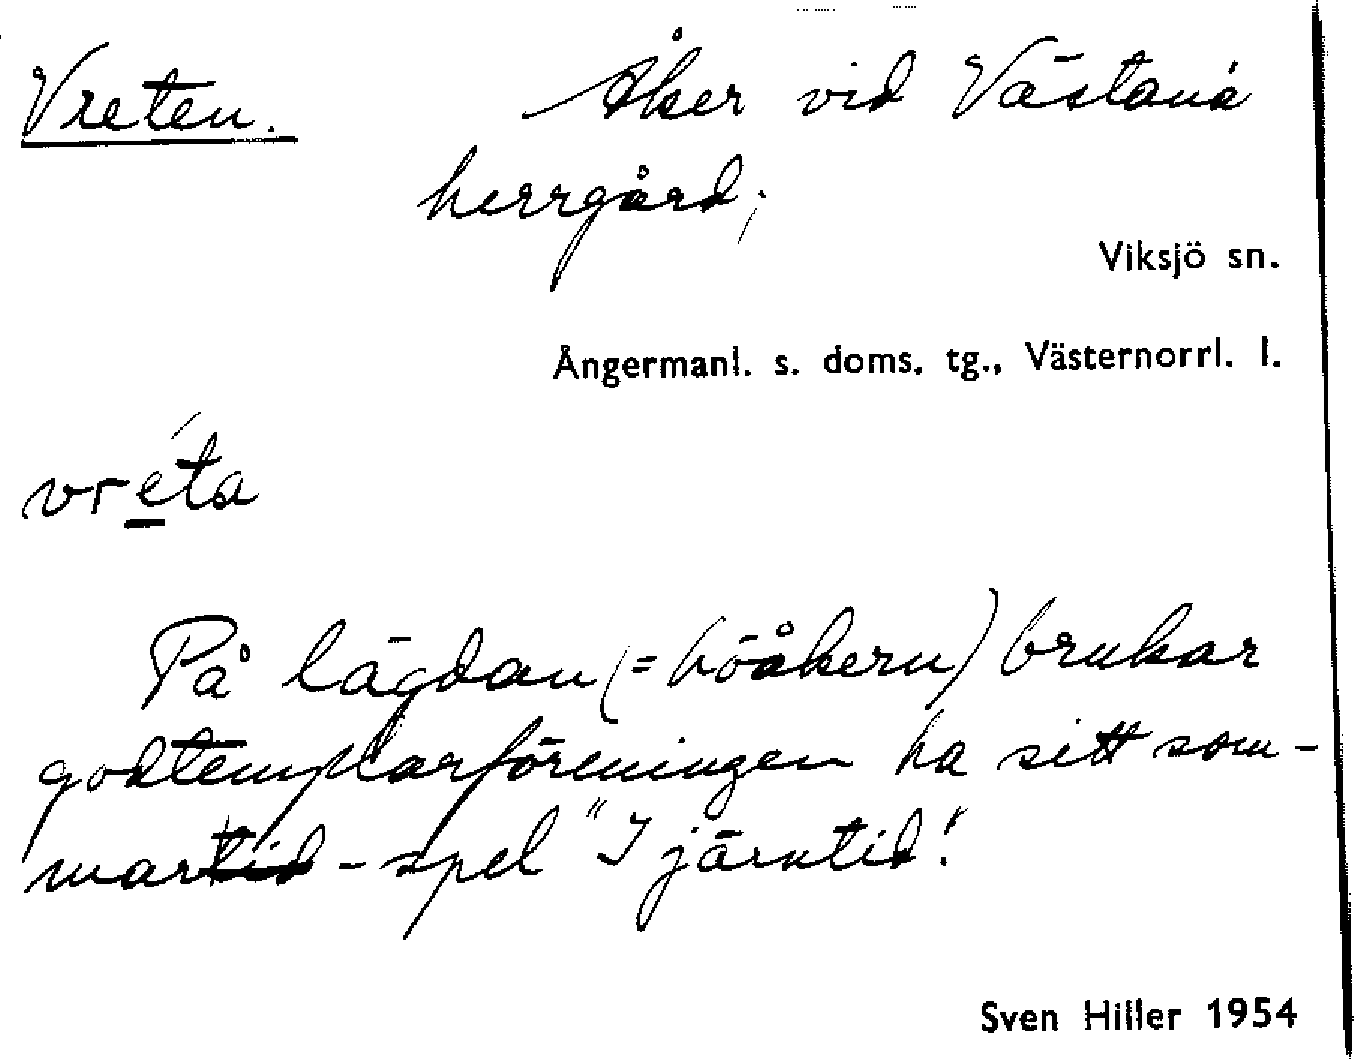 Vreten. Åker vid Västanå
herrgård;
Viksjö sn.
Ångermanl. s. doms. tg., Västernorrl. l.
vréta
På lägdan (= höåkern) brukar
godtemplarföreningen ha sitt som-
martid-spel "I järntid".
Sven Hiller 1954